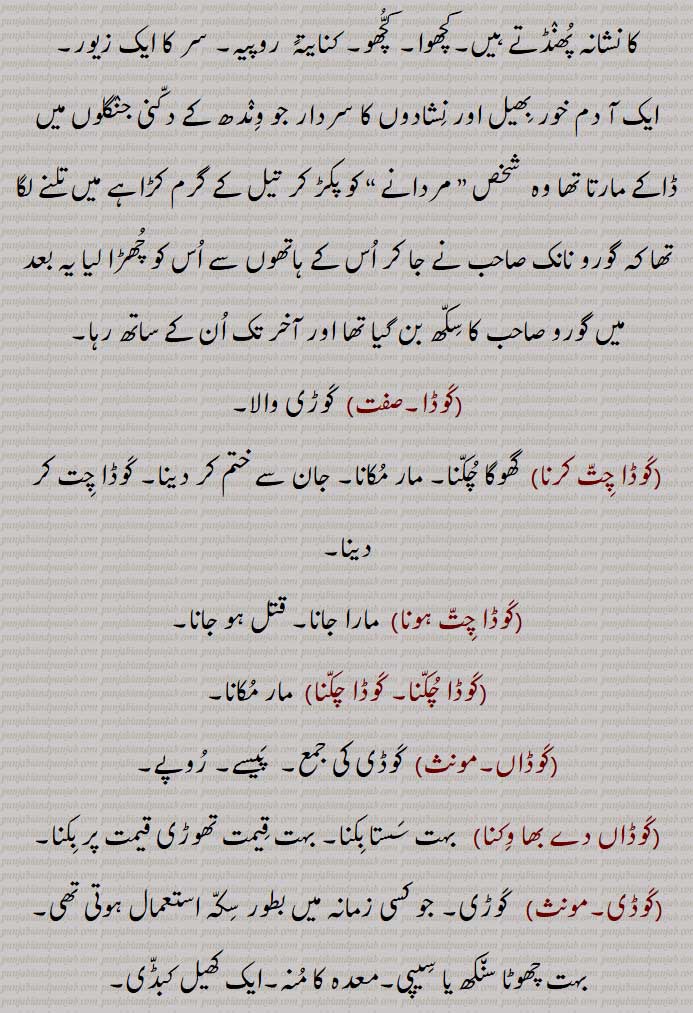 کا نشانہ پُھنْڈتے ہیں۔ کچھوا۔ کچُّھو۔ کنایتہً روپیہ۔ سر کا ایک زیور۔
ایک آدم خور بِھیل اور نِشادوں کا سردار جو وِنْدھ کے دکّنی جنْگلوں میں
ڈاکے مارتا تھا وہ شخص ”مردانے“ کو پکڑ کر تیل کے گرم کڑاہے میں تلنے لگا
تھا کہ گورو نانک صاحب نے جا کر اُس کے ہاتھوں سے اُس کو چُھڑا لیا یہ بعد
میں گورو صاحب کا سِکّھ بن گیا تھا اور آخر تک اُن کے ساتھ رہا۔
(کَوڈا۔صفت) کَوڑی والا۔
(کَوڈا چِتّ کرنا) گھوگا چُکّنا۔ مار مُکانا۔ جان سے ختم کر دینا۔ کَوڈا چِت کر
دینا۔
(کَوڈا چِتّ ہونا) مارا جانا۔ قتل ہو جانا۔
(کَوڈا چُکّنا۔ کَوڈا چکّنا) مار مُکانا۔
(کَوڈاں۔مونث) کَوڈی کی جمع۔ پَیسے۔ رُوپے۔
(کَوڈاں دے بھا وِکنا) بہت سَستا بِکنا۔ بہت قِیمت تھوڑی قیمت پر بِکنا۔
(کَوڈی۔مونث) کَوڑی۔ جو کسی زمانہ میں بطور سِکہّ استعمال ہوتی تھی۔
بہت چھوٹا سنْکھ یا سِیپی۔معدہ کا مُنہ۔ایک کھیل کبڈّی۔